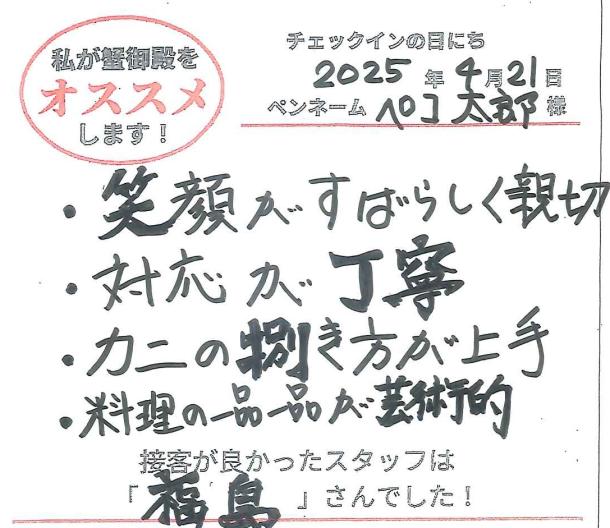 私が蟹御殿を
オススメ
します！
チェックインの日にち
2025 年 4月21日
ペンネーム ペロ 太郎 様
・笑顔がすばらしく親切
・対応が丁寧
・カニの捌き方が上手
・料理の一品一品が芸術的
接客が良かったスタッフは
「 福島 」さんでした！